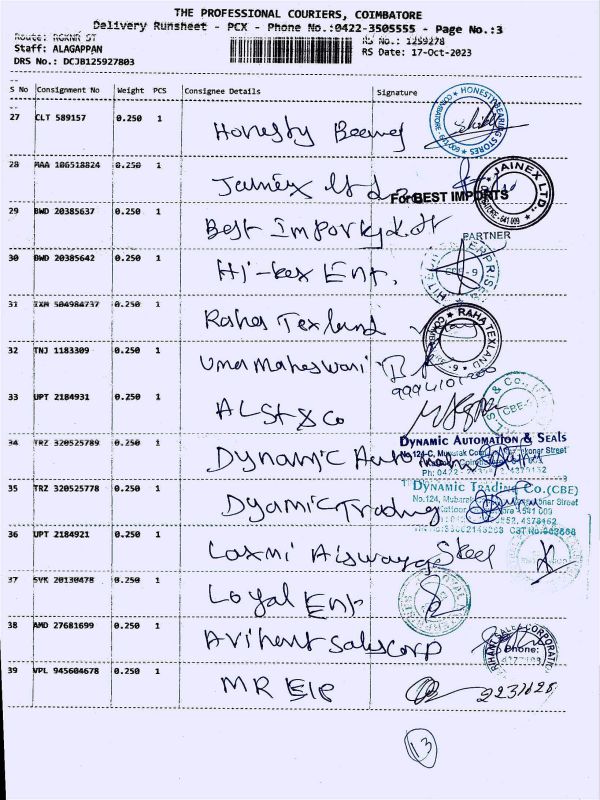 THE PROFESSIONAL COURIERS, COIMBATORE
Delivery Runsheet - PCX - Phone No.:0422-3505555 - Page No.:3
Route: RGKNR ST
RS No.: 1259278
Staff: ALAGAPPAN
RS Date: 17-Oct-2023
DRS No.: DCJB125927803
S No Consignment No Weight PCS Consignee Details Signature
27 CLT 589157 0.250 1 Honesty
HONESTY BEARING STORES
COIMBATORE
28 MAA 186518824 0.250 1 Jainex Ltd
JAINEX LTD.
For BEST IMPORTS
29 BWD 20385637 0.250 1 Best Import
PARTNER
30 BWD 20385642 0.250 1 Hi-kex Ent.
CBE-9
31 IXM 504984737 0.250 1 Raha Texland
RAHA TEXLAND
32 TNJ 1183309 0.250 1 Uma Maheswari
33 UPT 2184931 0.250 1 ALSt & Co
& Co.,
CBE-
DYNAMIC AUTOMATION & SEALS
34 TRZ 320525789 0.250 1 Dynamic Automation
No.124-C, Mubarak Street
35 TRZ 320525778 0.250 1 Dyamic Trading
DYNAMIC TRADING CO.(CBE)
No.124, Mubarak Street
36 UPT 2184921 0.250 1 Laxmi Steel
37 SVK 20130478 0.250 1 Loyal Ent
38 AMD 27681699 0.250 1 Arihent Sales corp
ARIHANT SALES CORPORATION
Phone:
39 VPL 945604678 0.250 1 MR Ele
2231625
13